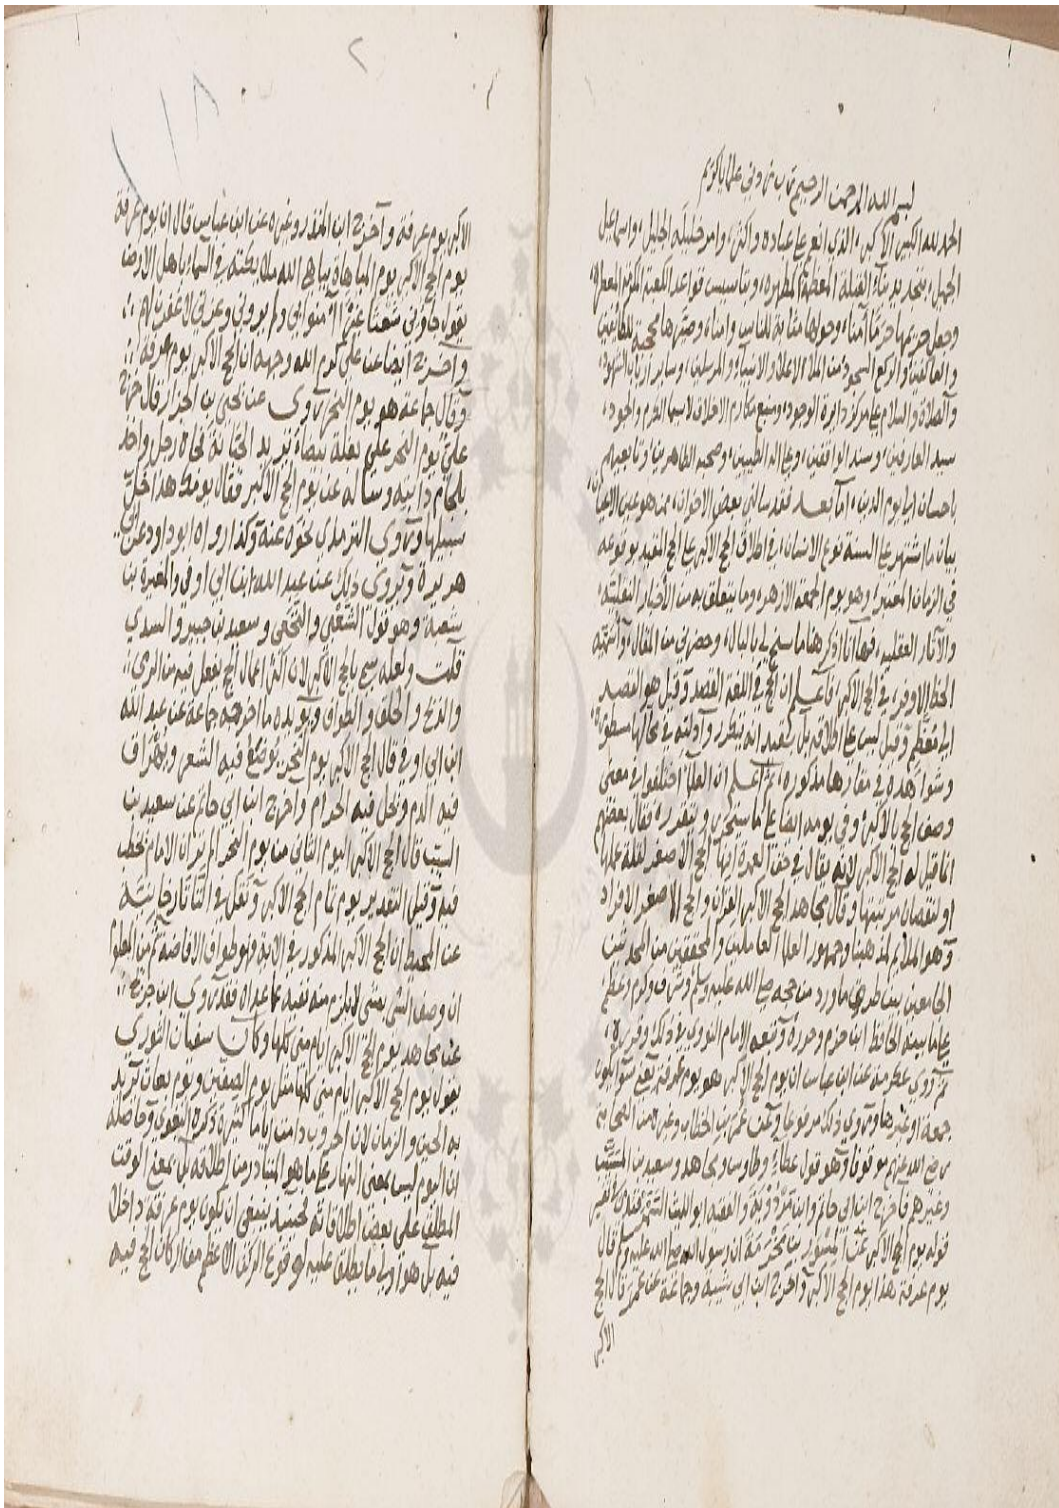 بسم الله الرحمن الرحيم رب زدني علما يا كريم
الحمد لله الكبير الاكبر، الذي انعم على عباده واكثر، وامر خليله الجليل، واسماعيل
الجميل، بتجديد بناء القبلة المعظمة المطهرة، وبتأسيس قواعد الكعبة المكرمة المعطرة
وجعل حريمها حرما آمنا، وحولها مثابة للناس وامنا، وصيرها محجة للطائفين
والعاكفين والركع السجود من الملاء الاعلى والانبياء والمرسلين، وساير ارباب الشهود،
والصلاة والسلام على مركز دايرة الوجود، ومنبع مكارم الاخلاق لاسيما الكرم والجود،
سيد العارفين، وسند الواقفين، وعلى اله الطيبين، وصحبه الطاهرين، وتابعيهم
باحسان الى يوم الدين، اما بعد فقد سالني بعض الاخوان، ممن هو عين الاعيان،
بيان ما اشتهر على السنة نوع الانسان، في اطلاق الحج الاكبر على الحج المقيد بوقوعه
في الزمان المعتبر، وهو يوم الجمعة الازهر، وما يتعلق به من الأخبار النقلية،
والآثار العقلية، فها انا اذكر هنا ما سنح لي بالبال، وحضرني من المقال، وأسميه
الحظ الاوفر، في الحج الاكبر، فاعلم ان الحج في اللغة القصد وقيل هو القصد
الى معظم وقيل ليس على اطلاقه بل بقيد انه يتكرر وادلته في محالها مسطورة،
وشواهده في مقارها مذكورة، ثم اعلم ان العلماء اختلفوا في معنى
وصف الحج بالاكبر، وفي يومه ايضا على ما سيحرر، ويتقرر، فقال بعضهم
انما قيل له الحج الاكبر لانه يقال في حق العمرة انها الحج الاصغر لقلة عملها
او لنقصان مرتبتها وقال مجاهد الحج الاكبر القران والحج الاصغر الافراد
وهو الملايم لمذهبنا وجمهور العلماء العاملين والمحققين من المحدثين
الجامعين بين طرفي ما ورد من حجه صلى الله عليه وسلم وشرف وكرم وعظم
على ما بينه الحافظ ابن حزم وحرره وتبعه الامام النووي في ذلك وقرره،
ثم روى عكرمة عن ابن عباس ان يوم الحج الاكبر هو يوم عرفة يعني سواء يكون
جمعة او غيرها وروي ذلك مرفوعا وعن عمر بن الخطاب وغيره من الصحابة
رضي الله عنهم موقوفا وهو قول عطاء وطاوس ومجاهد وسعيد بن المسيب
وغيرهم فاخرج ابن ابي حاتم وابن مردويه والفقيه ابو الليث السمرقندي في تفسير
قوله يوم الحج الاكبر عن المسور بن مخرمة ان رسول الله صلى الله عليه وسلم قال
يوم عرفة هذا يوم الحج الاكبر واخرج ابن ابي شيبة وجماعة عن عمر قال الحج
الاكبر
٢
الاكبر يوم عرفة وآخرج ابن المنذر وغيره عن ابن عباس قال ان يوم عرفة
يوم الحج الاكبر يوم المباهاة يباهي الله ملائكته في السماء باهل الارض
يقول جاؤني شعثا غبرا آمنوا بي ولم يروني وعزتي لاغفرن لهم ؛
واخرج ايضا عن علي كرم الله وجهه ان الحج الاكبر يوم عرفة ؛
وقال جماعة هو يوم النحر روى عن يحيى بن الجزار قال خرج
علي يوم النحر على بغلة بيضاء يريد الجبانة فجاه رجل واخذ
بلجام دابته وساله عن يوم الحج الاكبر فقال يومك هذا خل
سبيلها وروى الترمذي نحوه عنه وكذا رواه ابو داود عن ابي
هريرة ويروى ذلك عن عبد الله ابن ابي اوفى والمغيرة بن
شعبة وهو قول الشعبي والنخعي وسعيد بن جبير والسدي
قلت ولعله سمي بالحج الاكبر لان اكثر اعمال الحج يفعل فيه من الرمي
والذبح والحلق والطواف ويؤيده ما اخرجه جماعة عن عبد الله
ابن ابي اوفى قال الحج الاكبر يوم النحر يوضع فيه الشعر ويهراق
فيه الدم وتحل فيه الحرام واخرج ابن ابي حاتم عن سعيد بن
المسيب قال الحج الاكبر اليوم الثاني من يوم النحر الم تر ان الامام يخطب
فيه وقيل التقدير يوم تمام الحج الاكبر ونقل في التاتارخانية
عن المحيط ان الحج الاكبر المذكور في الاية فهو طواف الافاضة ثم من المعلوم
ان وصف الشئ بشئ لا يلزم منه نفيه عما عداه فقد روي ابن جريج ؛
عن مجاهد يوم الحج الاكبر ايام منى كلها وكان سفيان الثوري
يقول يوم الحج الاكبر ايام منى كلها مثل يوم الصفين ويوم بعاث يريد
به الحين والزمان لان الحروب دامت اياما كثيرة ذكره البغوي وحاصله
ان اليوم ليس بمعنى النهار على ما هو المتبادر من اطلاقه بل بمعنى الوقت
المطلق على بعض اطلاقاته فحينيذ ينبغي ان يكون يوم عرفة داخلا
فيه بل هو اولى ما يطلق عليه لوقوع الركن الاعظم من اركان الحج فيه